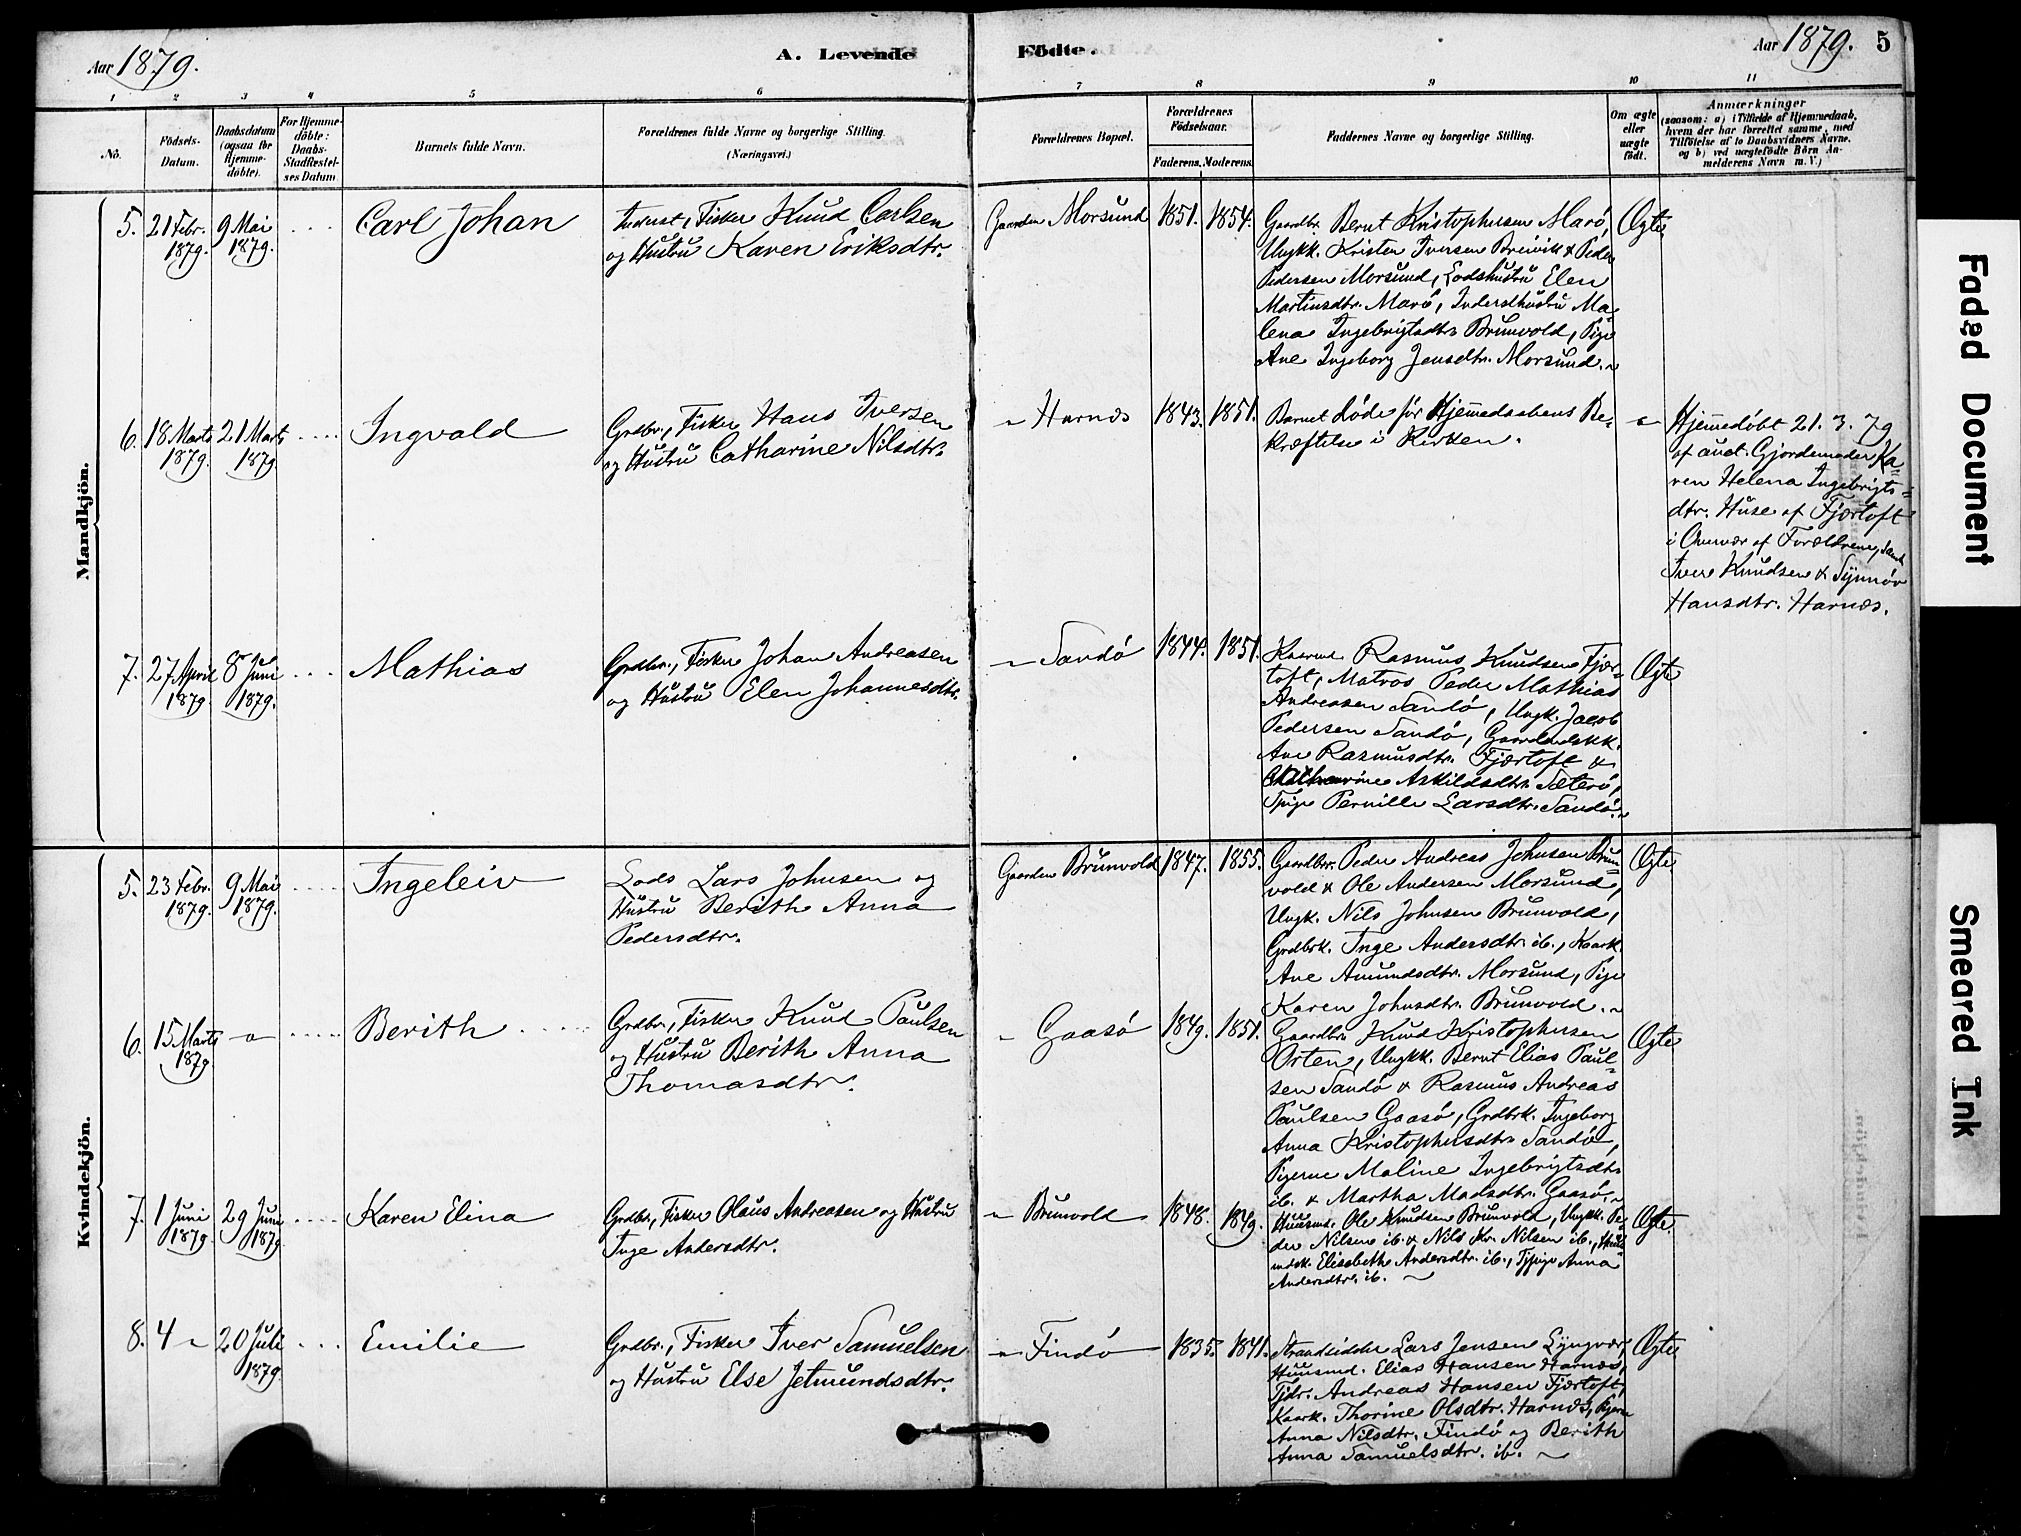 Aar 1879.
A. Levende
Födte.
Aar 1879.
5
1 2 3 4 5 6 7 8 9 10 11
No.
Födsels-
Datum.
Daabsdatum
(ogsaa for
Hjemme-
døbte).
For Hjemme-
døbte:
Daabs-
Stadfæstel-
ses Datum
Barnets fulde Navn.
Forældrenes fulde Navne og borgerlige Stilling.
(Næringsvei.)
Forældrenes Bopæl.
Forældrenes
Fødselsaar.
Faderens. Moderens.
Faddernes Navne og borgerlige Stilling.
Om ægte
eller
uægte
født.
Anmærkninger
(saasom: a) i Tilfælde af Hjemmedaab,
hvem der har forrettet samme, med
Tilføielse af to Daabsvidners Navne,
og b) ved uægtefødte Börn An-
melderens Navn m. V.)
Mandkjön.
5. 21 Febr. 1879.
9 Mai 1879.
Carl Johan
Inderst, Fisker Knud Carlsen
og Hustru Karen Eriksdtr.
Gaarden Morsund
1851. 1854.
Gaardbr. Bernt Kristophersen Marö,
Ungkk. Kristen Iversen Breivik & Peder
Pedersen Morsund, Lodshustru Elen
Martinsdtr. Marö, Indersthustru Ma-
lena Ingebrigtsdtr. Brunvold, Pige
Ane Ingeborg Jensdtr. Morsund.
Ægte
6. 18 Marts 1879.
21 Marts 1879.
Ingvald
Grdbr., Fisker Hans Iversen
og Hustru Catharine Nilsdtr.
" Harnæs
1843. 1851.
Barnet döde för Hjemedaabens Be-
kræftelse i Kirken.
"
Hjemedöbt 21. 3. 79
af aut. Gjordemoder Ka-
ren Helena Ingebrigts-
dtr. Huse af Fjærtoft
i Overvær af Forældrene, samt
Iver Knudsen & Synnöv
Hansdtr. Harnæs.
7. 27 April 1879.
8 Juni 1879.
Mathias
Grdbr., Fisker Johan Andreasen
og Hustru Elen Johannesdtr.
" Sandö
1844. 1851.
Kaarmd. Rasmus Knudsen Fjær-
toft, Matros Peder Mathias
Andreasen Sandö, Ungk. Jacob
Pedersen Sandö,
Ane Rasmusdtr. Fjærtoft &
Catharine Askildsdtr. Sæterö,
Pige Pernille Larsdtr. Sandö.
Ægte
Kvindekjön.
5. 23 Febr. 1879.
9 Mai 1879.
Ingeleiv
Lods Lars Johnsen og
Hustru Berith Anna
Pedersdtr.
Gaarden Brunvold
1847. 1855.
Gaardbr. Peder Andreas Johnsen Brun-
vold & Ole Andersen Morsund,
Ungk. Nils Johnsen Brunvold,
Grdbrk. Inge Andersdtr. ib., Kaark.
Ane Amundsdtr. Morsund, Pige
Karen Johnsdtr. Brunvold.
Ægte
6. 15 Marts 1879.
"
Berith
Grdbr., Fisker Knud Paulsen
og Hustru Berith Anna
Thomasdtr.
" Gaasö
1849. 1851.
Gaardbr. Knud Kristophersen
Orten, Ungkk. Bernt Elias Paul-
sen Sandö & Rasmus Andreas
Paulsen Gaasö, Grdbrk. Ingeborg
Anna Kristophersdtr. Sandö,
Pigerne Maline Ingebrigtsdtr.
ib. & Martha Madsdtr. Gaasö.
Ægte
7. 1 Juni 1879
29 Juni 1879.
Karen Elina
Grdbr., Fisker Olaus Andreasen og Hustru
Inge Andersdtr.
" Brunvold
1848. 1849.
Huusmd. Ole Knudsen Brunvold, Ungkk. Pe-
der Nilsen ib. & Nils Kr. Nilsen ib.,
Elisabeth Andersdtr. ib., Tjpige Anna
Andersdtr. ib.
Ægte.
8. 4 "
20 Juli 1879
Emilie
Grdbr., Fisker Iver Samuelsen
og Hustru Else Jetmundsdtr.
" Findö
1835. 1841.
Strandsidder Lars Jensen Lyngvær,
Huusmd. Elias Hansen Harnæs,
Tjdr. Andreas Hansen Fjærtoft,
Kaark. Thorine Olsdtr. Harnæs, Pigerne
Anna Nilsdtr. Findö og Berith
Anna Samuelsdtr. ib.
Ægte
6
Faded Document
Smeared Ink